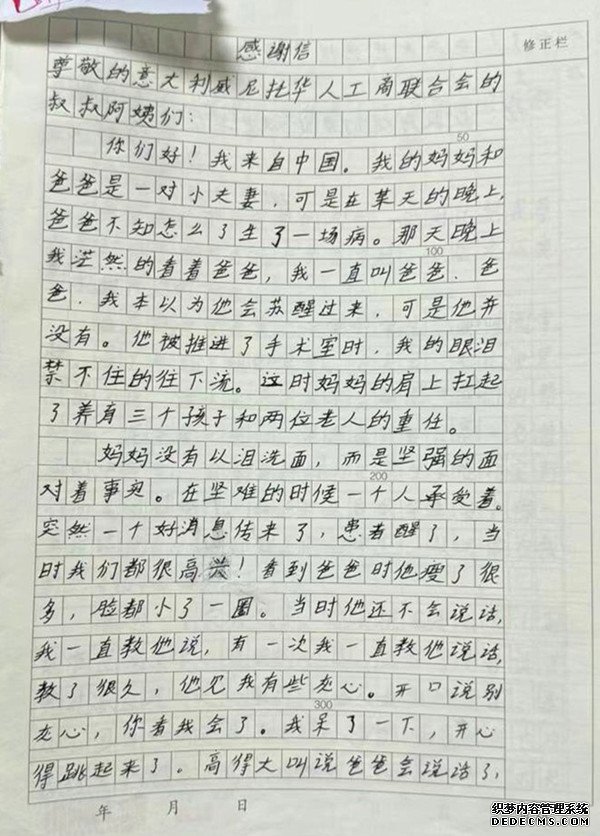 感谢信
修正栏
尊敬的意大利威尼托华人工商联合会的
叔叔阿姨们:
50
你们好!我来自中国。我的妈妈和
爸爸是一对小夫妻,可是在某天的晚上,
爸爸不知怎么了生了一场病。那天晚上
100
我茫然的看着爸爸,我一直叫爸爸、爸
爸、我本以为他会苏醒过来,可是他并
没有。他被推进了手术室时,我的眼泪
禁不住的往下流。这时妈妈的肩上扛起
了养育三个孩子和两位老人的重任。
妈妈没有以泪洗面,而是坚强的面
200
对着事实。在坚难的时候一个人承受着。
突然一个好消息传来了,患者醒了,当
时我们都很高兴!看到爸爸时他瘦了很
多,脸都小了一圈。当时他还不会说话,
我一直教他说,有一次我一直教他说话,
教了很久,他见我有些灰心。开口说别
300
灰心,你看我会了。我呆了一下,开心
得跳起来了。高得大叫说爸爸会说话了,
年 月 日
织梦内容管理系统
DEDECMS.COM